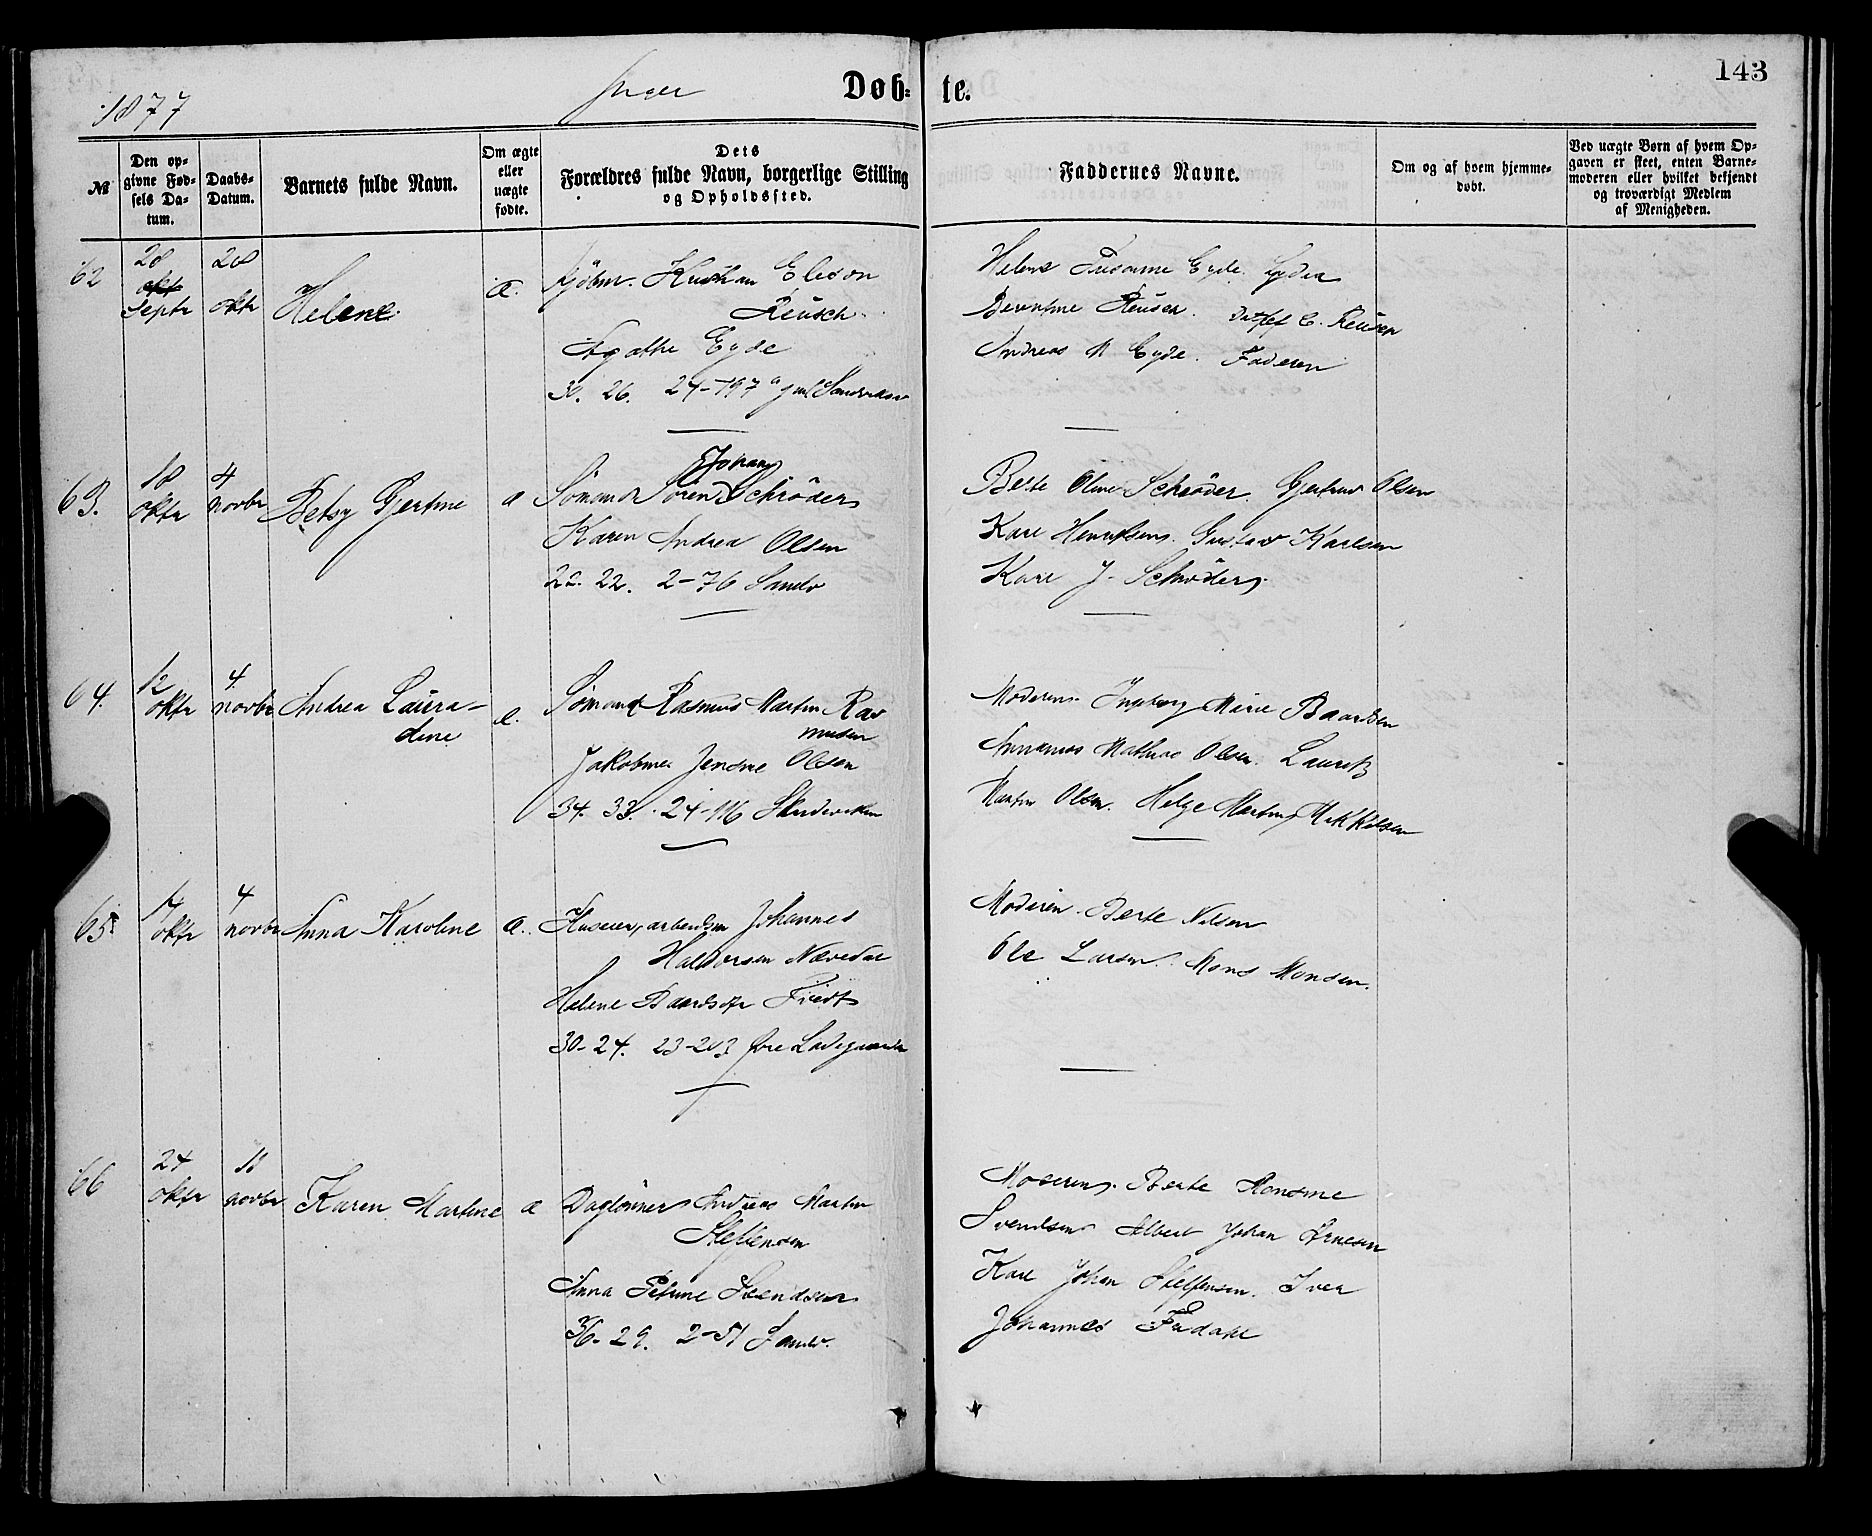 1877
Døb-
te.
143
№
Den op-
givne Fød-
sels Da-
tum.
Daabs-
Datum.
Barnets fulde Navn.
Om ægte
eller
uægte
fødte.
Dets
Forældres fulde Navn, borgerlige Stilling
og Opholdssted.
Faddernes Navne.
Om og af hvem hjemme-
døbt.
Ved uægte Børn af hvem Op-
gaven er skeet, enten Barne-
moderen eller hvilket bekjendt
og troværdigt Medlem
af Menigheden.
62
28
oktr
septr
28
oktr
Helene
Reusch
Agathe Eyde
30. 26. 24-197
Helene Susanne Eyde.
Reusch. C. Reusch
Andreas Eyde. Faderen
63.
18
oktr
4
novbr
Betsy Gjertine
Johan
Sømand Søren Schrøder
Karen Andrea Olsen
22. 2-76 Sandv
Berte Oline Schrøder. Gjertrud Olsen
Karl Henriksen. Gustav Karlsen
Karl J. Schrøder
64.
12
oktr
4
novbr
Andrea Laura-
dine
Sømand Rasmus Martin Ras
musen
Jakobine Jensine Olsen
34. 33. 24-116
Moderen. Ingeborg Marie Baardsen
Mathias Olsen. Lauritz
Martin Olsen. Helge Martin Mikkelsen
65
17
oktr
4
novbr
Anna Karoline
Huseier, arbeidsm Johannes
Halvorsen
Helene Baardsdtr
30-24. 23-203
Moderen. Berte Nilsen
Ole Larsen. Mons Monsen.
66
24
oktr
11
novbr
Karen Martine
Daglønner Andreas Martin
Steffensen
Anna Petrine Svendsen
36-29. 2-51 Sandv.
Moderen. Berte Monsine
Svendsen Albert Johan Arnesen
Karl Johan Steffensen. Iver
Johannes